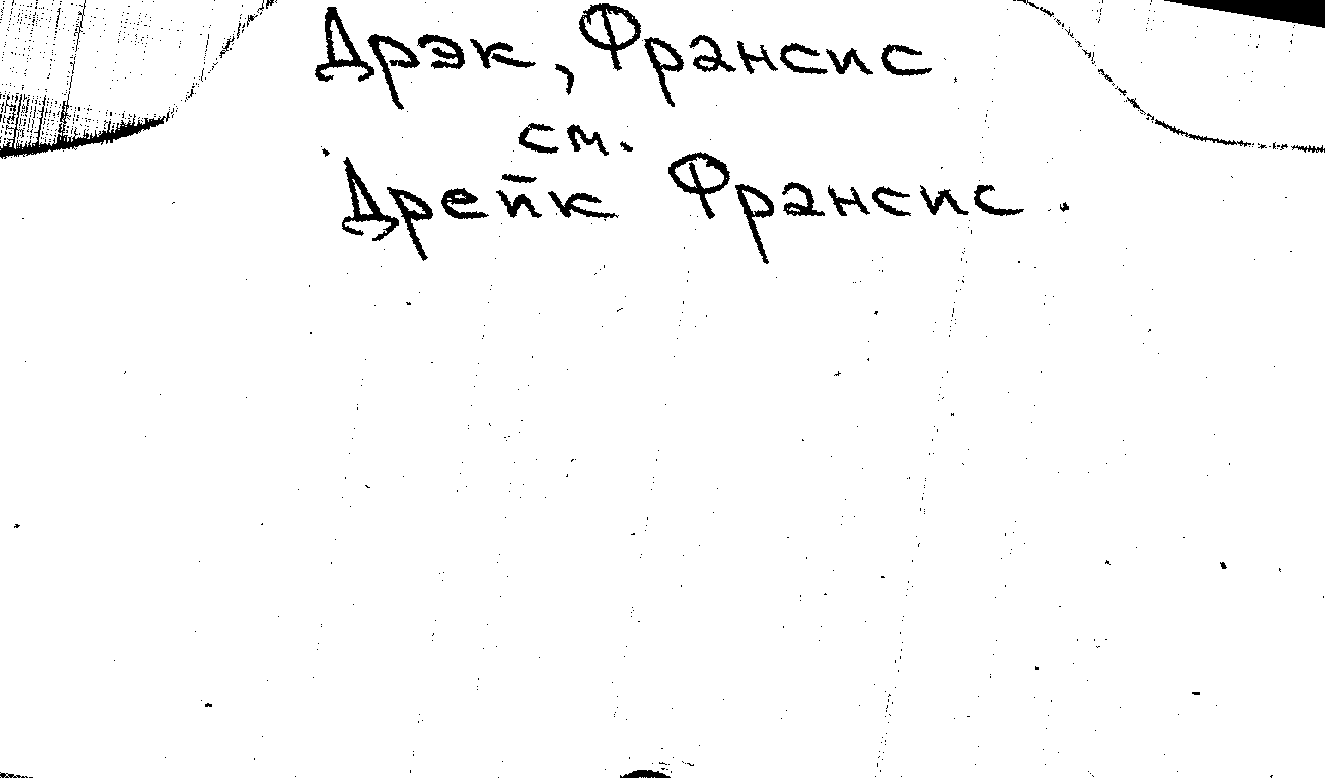 Дрэк, Франсис
см.
Дрейк Франсис.